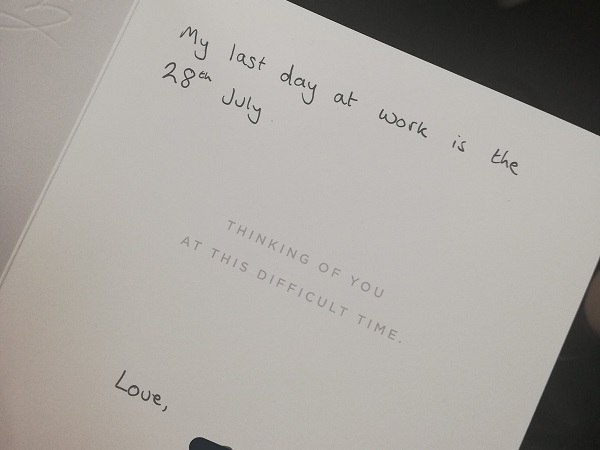 My last day at work is the
28th July
THINKING OF YOU
AT THIS DIFFICULT TIME.
Love,